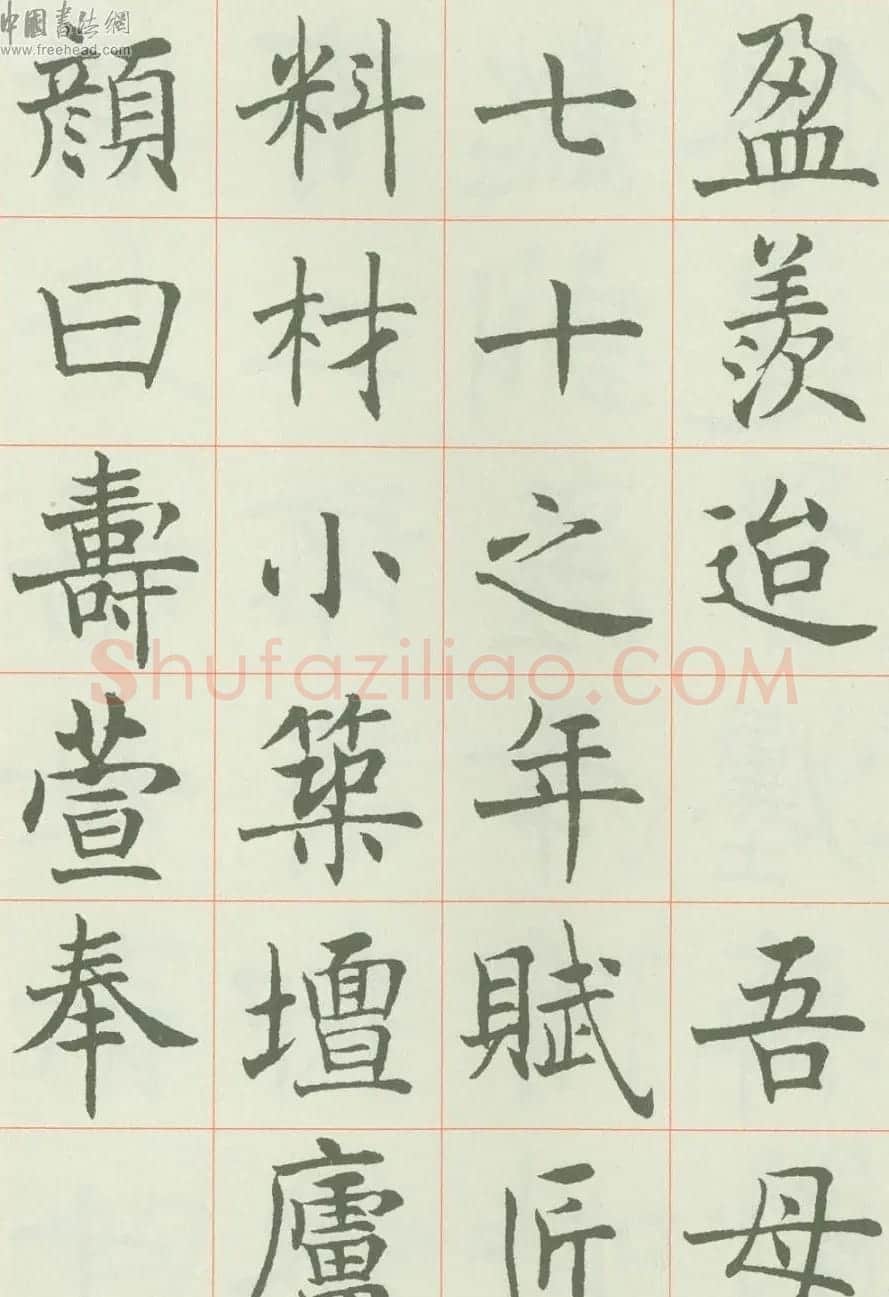 中國書法網
www.freehead.com
盈羨迨 吾母
七十之年賦匠
料材小築壇廬
顏曰壽萱奉
Shufaziliao.COM